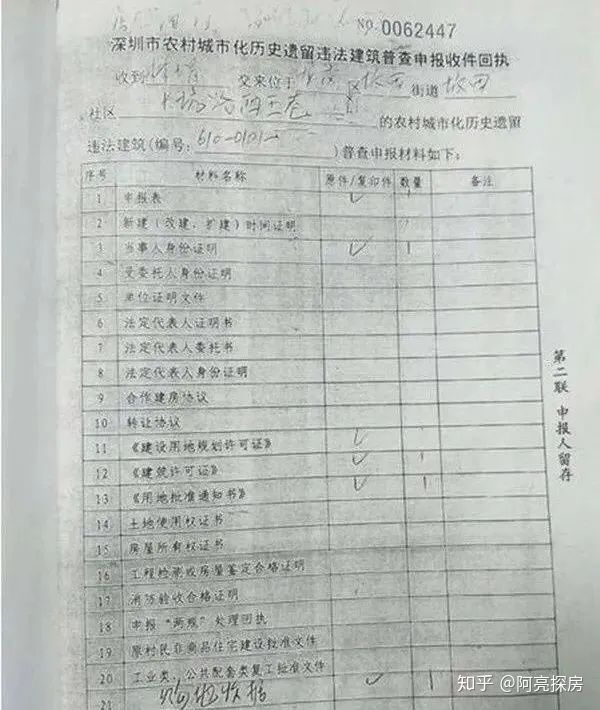 NO. 0062447
深圳市农村城市化历史遗留违法建筑普查申报收件回执
收到 交来位于 区 坂田 街道 坂田
社区 的农村城市化历史遗留
违法建筑(编号: )普查申报材料如下:
序号 材料名称 原件/复印件 数量 备注
1 申报表 ✓ 1
2 新建(改建、扩建)时间证明
3 当事人身份证明 ✓ 1
4 受委托人身份证明
5 单位证明文件
6 法定代表人证明书
7 法定代表人委托书
8 法定代表人身份证明
9 合作建房协议
10 转让协议
11 《建设用地规划许可证》 ✓
12 《建筑许可证》 ✓ 1
13 《用地批准通知书》 ✓ 1
14 土地使用权证书
15 房屋所有权证书
16 工程检测或房屋鉴定合格证明
17 消防验收合格证明
18 申报“两规”处理回执
19 原村民非商品住宅建设批准文件
20 工业类、公共配套类复工批准文件
21 ✓ 1
第二联 申报人留存
知乎 @阿亮探房